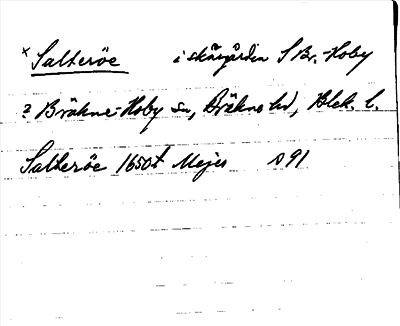 × Salteröe i skärgården S Br.-Hoby
? Bräkne-Hoby sn, Bräkne hd, Blek. l.
Salteröe 1650t Mejer s 91